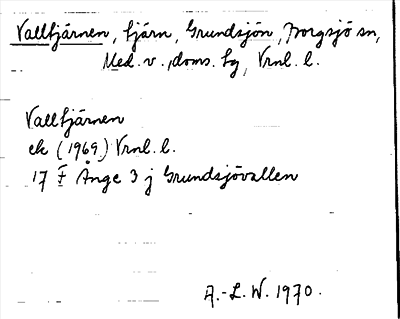 Valltjärnen, tjärn, Grundsjön, Borgsjö sn,
Med. v., doms. hg, Vrnl. l.
Valltjärnen
ek (1969) Vrnl. l.
17 F Ånge 3 j Grundsjövallen
A.-L. W. 1970.